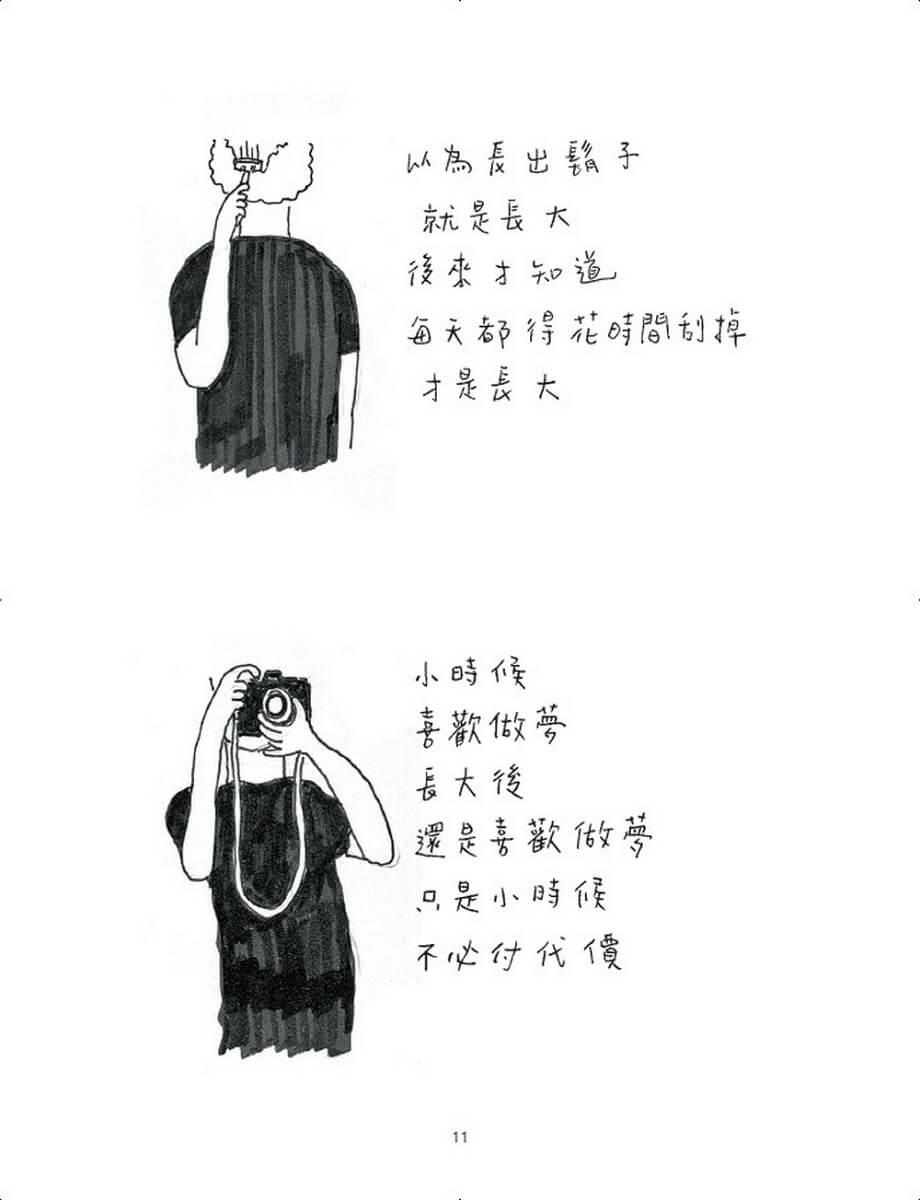 以為長出鬍子
就是長大
後來才知道
每天都得花時間刮掉
才是長大
小時候
喜歡做夢
長大後
還是喜歡做夢
只是小時候
不必付代價
11